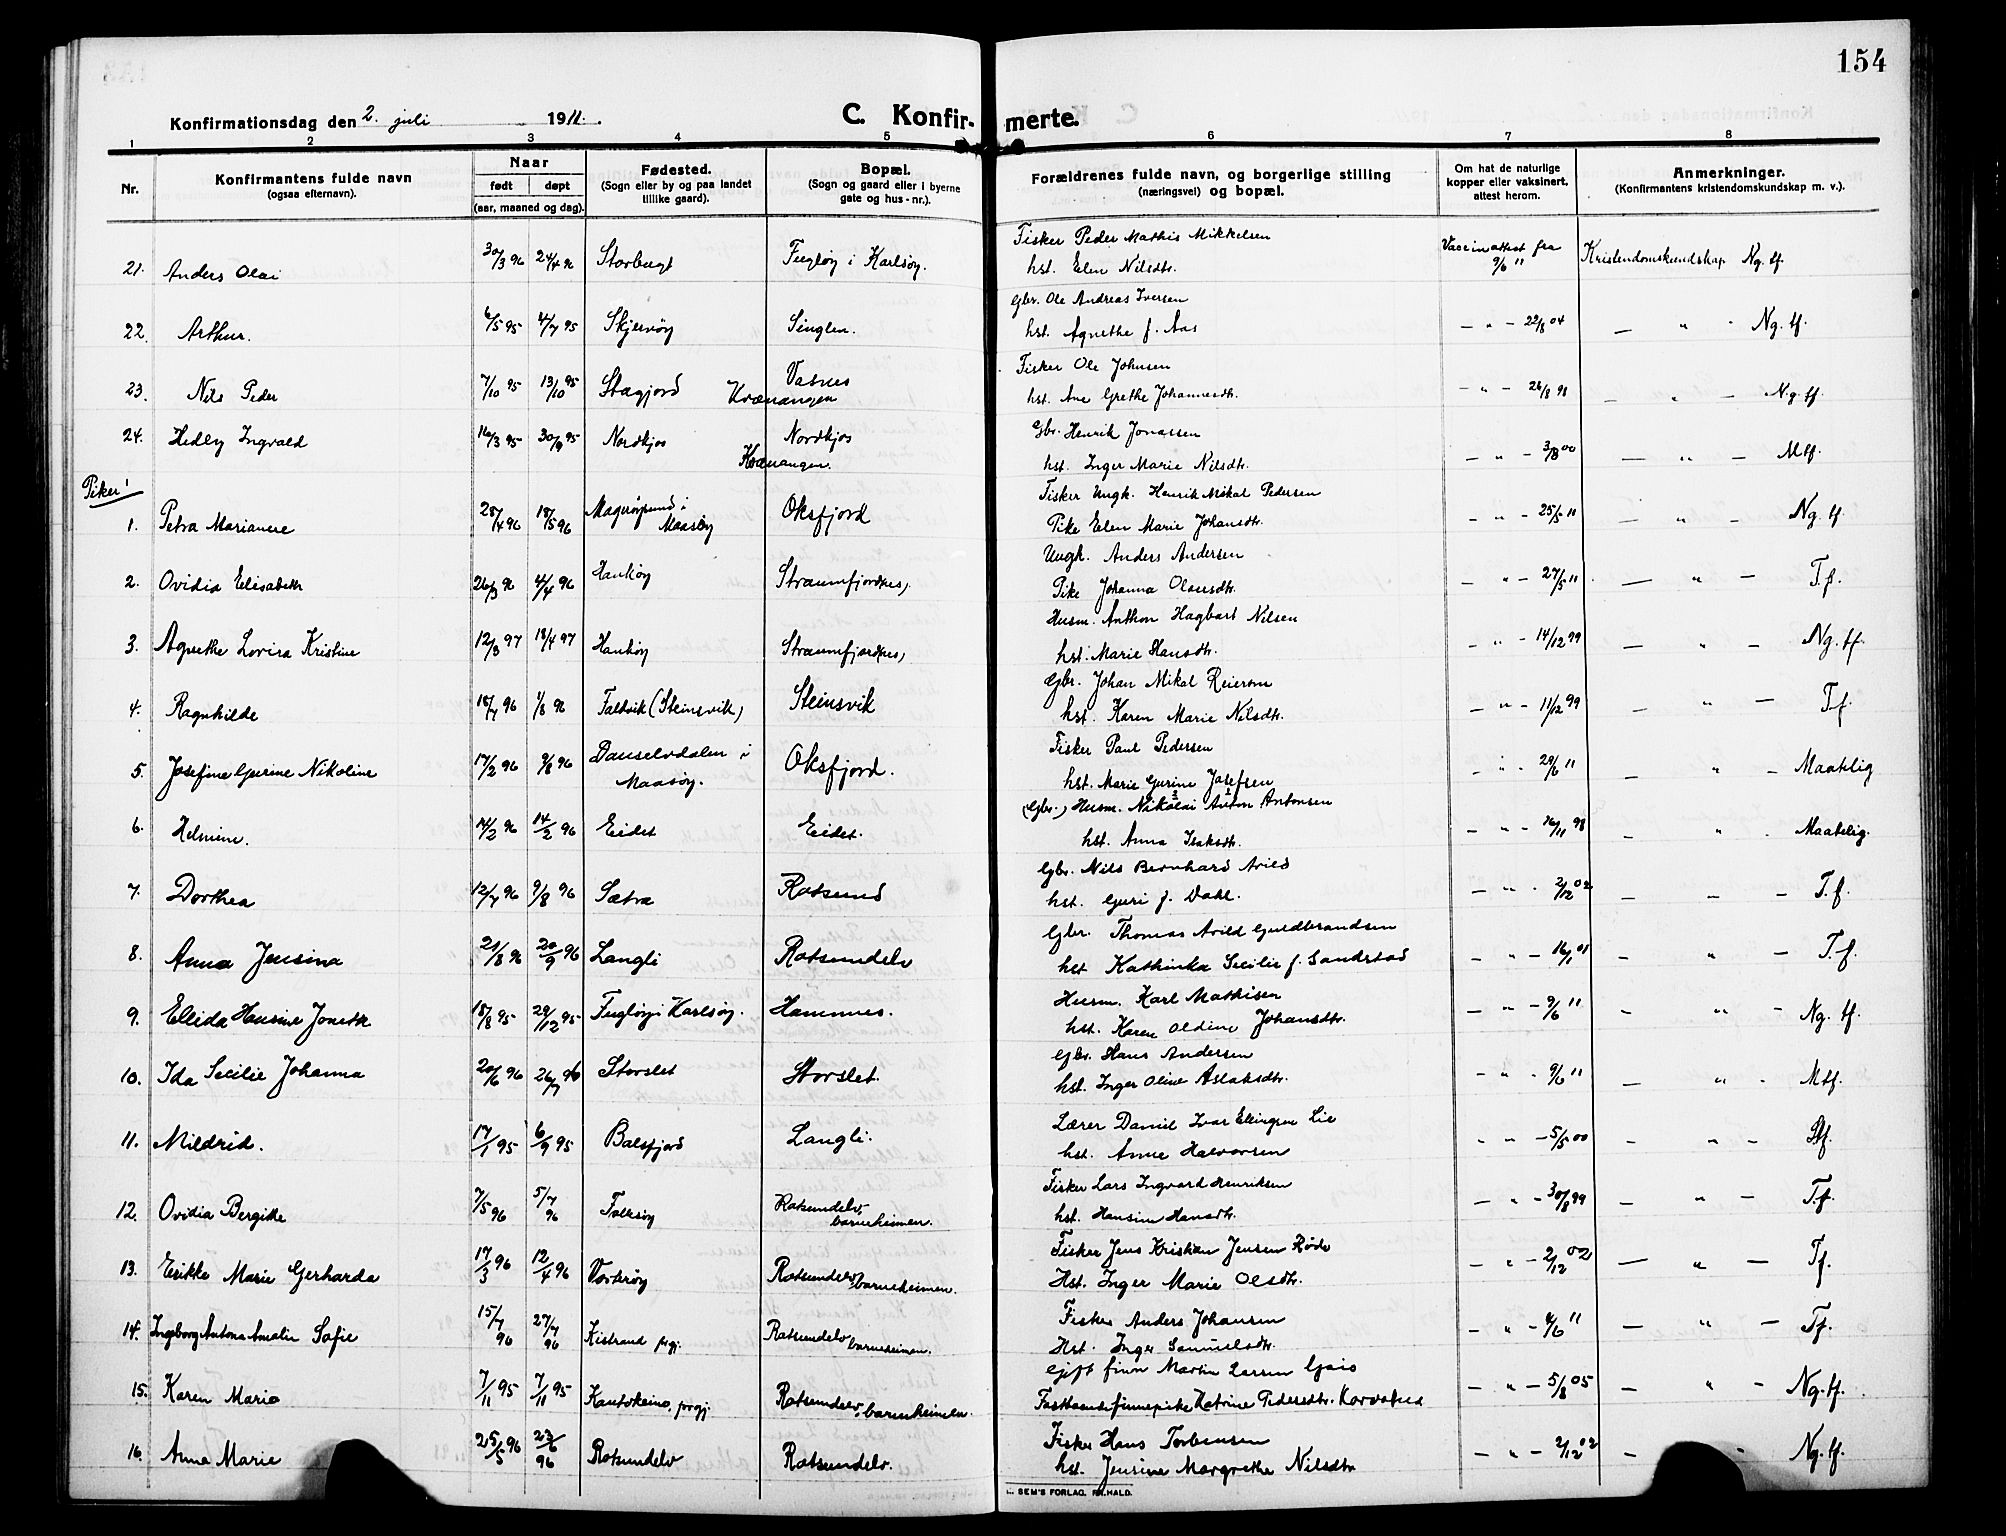 154
Konfirmationsdag den 2. juli 1911.
C. Konfirmerte.
1 2 3 4 5 6 7 8
Nr.
Konfirmantens fulde navn
(ogsaa efternavn).
Naar
født døpt
(aar, maaned og dag).
Fødested.
(Sogn eller by og paa landet
tillike gaard).
Bopæl.
(Sogn og gaard eller i byerne
gate og hus-nr.).
Forældrenes fulde navn, og borgerlige stilling
(næringsvei) og bopæl.
Om hat de naturlige
kopper eller vaksinert.
attest herom.
Anmerkninger.
(Konfirmantens kristendomskundskap m. v.).
21. Anders Olai 30/3 96 24/4 96 Storbugt Fugløy i Karlsøy. Fisker Peder Mathis Mikkelsen Vaccinattest fra 9/6 11 Kristendomskundskap Ng. tf.
hst. Elen Nilsdtr.
Gbr. Ole Andreas Iversen
22. Arthur. 6/5 95 4/7 95 Skjervøy hst. Agnethe f. Aas — " — 22/8 04 — " - Ng. tf.
Fisker Ole Johnsen
23. Nils Peder 7/10 95 13/10 95 Vasnes
Kvænangen hst. Ane Grethe Johannesdtr. — " — — " — Ng. tf.
24. Hedley Ingvald 16/3 95 30/9 95 Nordkjos Nordkjos Gbr. Henrik Jonassen
Kvænangen. hst. Inger Marie Nilsdtr. — " — 3/8 00 — " — Mtf.
Piker!
1. Petra Marianne 28/4 96 18/5 96 Magerøysund i Oksfjord Fisker Ungk. Henrik Mikal Pedersen
Maasøy Pike Elen Marie Johansdtr. — " — 25/5 11 — " — Ng. tf.
2. Ovidia Elisabeth 26/3 96 4/4 96 Haukøy Straumfjordnes, Ungk. Anders Andersen
Pike Johanna Olausdtr. — " — 27/5 11 — " — T.f.
3. Agnethe Lovisa Kristine 12/3 97 18/4 97 Haukøy Straumfjordnes, Husm. Anthon Hagbart Nilsen
hst. Marie Hansdtr. — " — 14/12 99 — " — Ng. tf.
4. Ragnhilde 18/7 96 1/8 96 Taldvik (Steinsvik) Steinsvik Gbr. Johan Mikal Reiersen
hst. Karen Marie Nilsdtr. — " — 11/12 99 — " — T.f.
5. Josefine Gurine Nikoline 17/2 96 9/8 96 i Oksfjord. Fisker Paul Pedersen
Maasøy. hst. Marie Gurine Josefsen — " — 29/6 11 — " — Maatelig
6. Helmine. 14/2 96 Eidet Eidet. (Gbr.) Husm. Nikolai Anton Antonsen
hst. Anna Isaksdtr. — " — 16/11 98 — " - Maatelig.
7. Dorthea 12/7 96 9/8 96 Sætra Rotsund Gbr. Nils Bernhard Arild
hst. Guri f. Dahl. — " - 2/12 02 — " — T.f.
8. Anna Jensina 21/8 96 20/9 96 Langli Rotsundelv Gbr. Thomas Arild Guldbrandsen
hst Kathinka Secilie f. Sandstad — " — 16/1 01 — " — T.f.
9. Elida Hansine Jonette 18/8 95 29/12 95 Fugløy i Karlsøy. Hamnes. Husm. Karl Mathisen
hst. Karen Oldine Johansdtr. — " — 9/6 11 — " — Ng. tf.
10. Ida Secilie Johanna 20/6 96 26/7 96 Storslet Storslet. Gbr. Hans Andersen
hst. Inger Oline Aslaksdtr. - " - 9/6 11 — " - Mtf.
11. Mildrid. 17/1 95 6/9 95 Balsfjord Langli. Lærer Daniel Ivar Ellingsen Lie
hst. Anne Halvorsen " " — 5/5 00 — " —
12. Ovidia Bergitte 7/5 96 5/7 96 Rotsundelv, Fisker Lars Ingvard Henriksen
barneheimen. hst. Hansine Hansdtr. — " — 30/8 99 — " — T.f.
13. Erikke Marie Gerharda 17/3 96 12/4 96 Vorterøy Rotsundelv, barneheimen. Fisker Jens Kristian Jensen Røde
Hst. Inger Marie Olsdtr. — " — 2/12 02 — " — T.f.
14. Ingeborg Antona Amalie Sofie 15/7 96 27/7 96 Kistrand prgj. Rotsundelv barneheimen. Fisker Anders Johansen
Hst. Inger Samuelsdtr. — " — 4/6 11 — " — T.f.
15. Karen Marie 7/11 95 7/11 95 Kautokeino, prgj. Rotsundelv, barneheimen. Gift finn Martin Larsen Gais
Fastboende finnepike Katrine Pedersdtr. — " — 5/8 05 — " — Ng. tf.
16. Anna Marie 25/5 96 23/6 96 Rotsundelv Rotsundelv. Fisker Hans Torbensen
hst. Jensine Margrethe Nilsdtr — " — 2/12 02 — Ng. tf.
SEM'S FORLAG. FR.HALD.